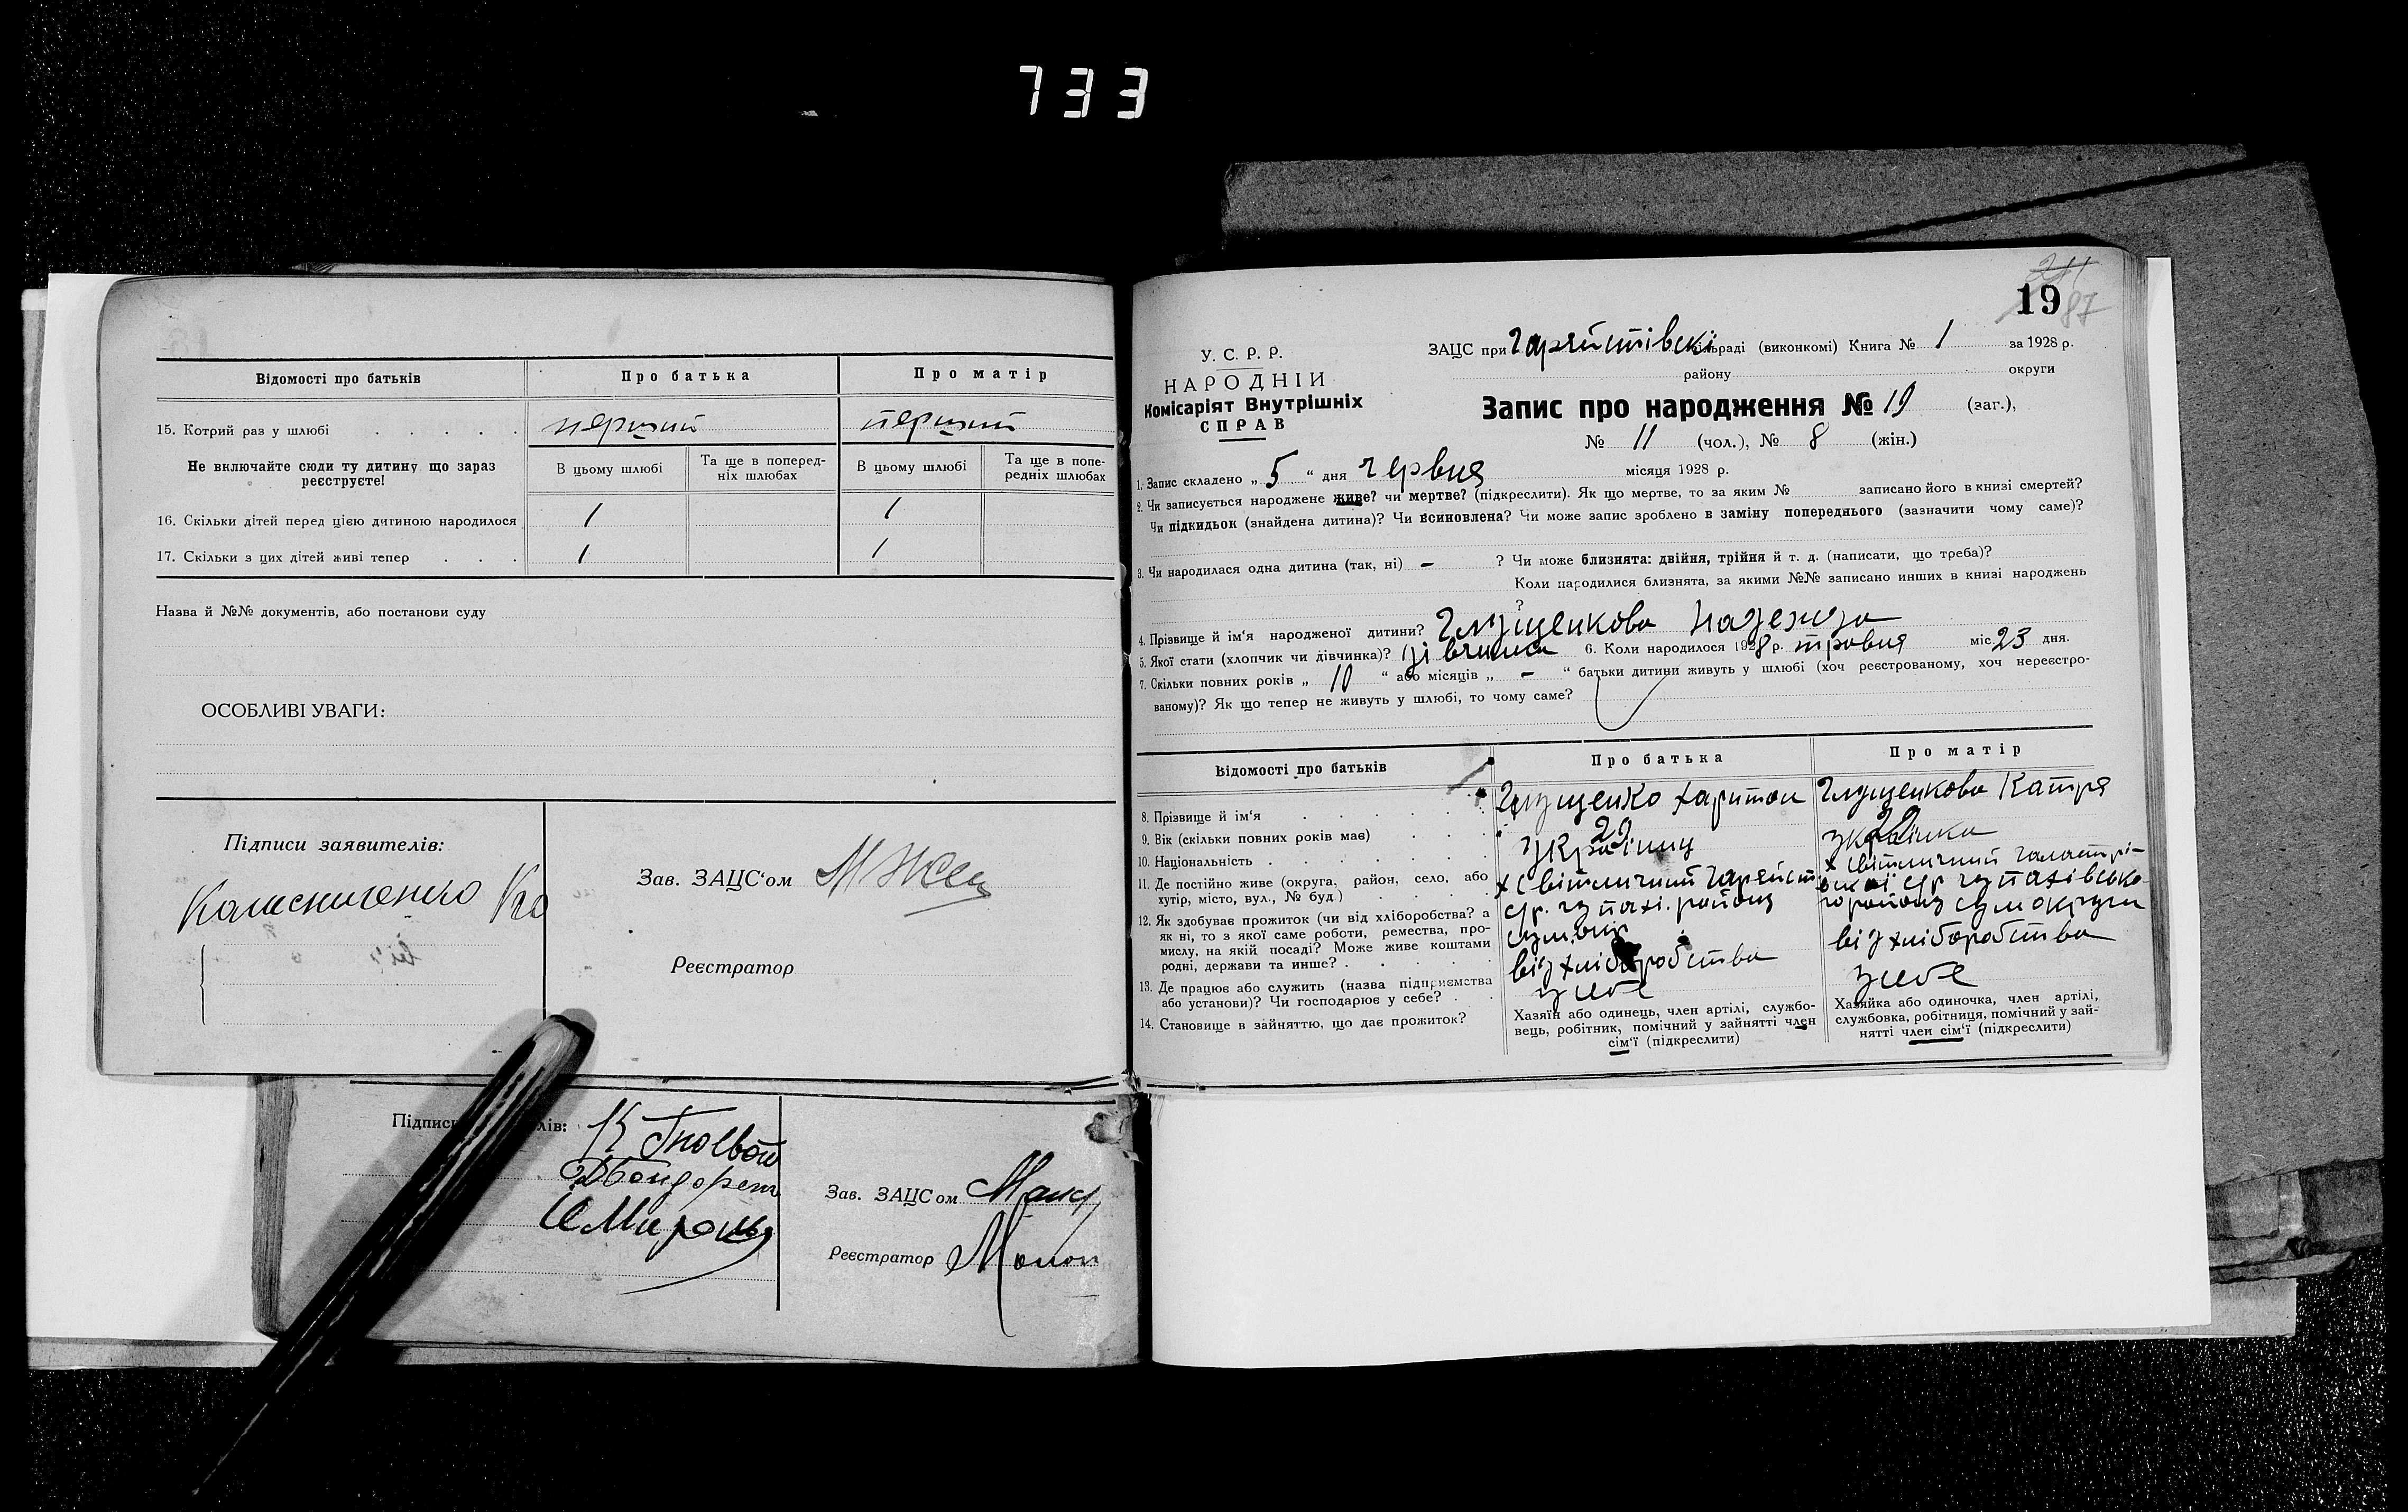 733
Відомості про батьків
Про батька
Про матір
15. Котрий раз у шлюбі
перший
перший
Не включайте сюди ту дитину що зараз реєструєте!
В цьому шлюбі
Та ще в поперед-
ніх шлюбах
В цьому шлюбі
Та ще в попе-
редніх шлюбах
16. Скільки дітей перед цією дитиною народилося
1
1
17. Скільки з цих дітей живі тепер
1
1
Назва й №№ документів, або постанови суду
ОСОБЛИВІ УВАГИ:
Підписи заявителів:
Зав. ЗАЦС'ом
Реєстратор
Підпис лів:
Зав. ЗАЦСом
Реєстратор
19
87
У. С. Р. Р.
НАРОДНІИ
Комісаріят Внутрішніх
СПРАВ
ЗАЦС при сільраді (виконкомі) Книга № 1 за 1928 р.
району округи
Запис про народження № 19 (заг.),
№ 11 (чол.), № 8 (жін.)
1. Запис складено „ 5 “ дня червня місяця 1928 р.
2. Чи записується народжене живе? чи мертве? (підкреслити). Як що мертве, то за яким № записано його в книзі смертей?
Чи підкидьок (знайдена дитина)? Чи всиновлена? Чи може запис зроблено в заміну попереднього (зазначити чому саме)?
3. Чи народилася одна дитина (так, ні) – ? Чи може близнята: двійня, трійня й т. д. (написати, що треба)?
Коли народилися близнята, за якими №№ записано инших в книзі народжень
?
4. Прізвище й ім'я народженої дитини? Глущенкова Надежда
5. Якої стати (хлопчик чи дівчинка)? дівчинка 6. Коли народилося 1928 р. травня міс. 23 дня.
7. Скільки повних років „ 10 “ або місяців „ – “ батьки дитини живуть у шлюбі (хоч реєстрованому, хоч нереєстро-
ваному)? Як що тепер не живуть у шлюбі, то чому саме?
Відомості про батьків
Про батька
Про матір
8. Прізвище й ім'я
Глущенко Харитон
Глущенкова Катря
9. Вік (скільки повних років має)
29
29
10. Національність
українец
українка
11. Де постійно живе (округа, район, село, або
хутір, місто, вул., № буд)
х Світличний
х Світличний
12. Як здобуває прожиток (чи від хліборобства? а
як ні, то з якої саме роботи, ремества, про-
мислу, на якій посаді? Може живе коштами
родні, держави та инше?
від хліборобства
від хліборобства
13. Де працює або служить (назва підприємства
або установи)? Чи господарює у себе?
у себе
у себе
14. Становище в зайняттю, що дає прожиток?
Хазяїн або одинець, член артілі, службо-
вець, робітник, помічний у зайнятті член
сім'ї (підкреслити)
Хазяйка або одиночка, член артілі,
службовка, робітниця, помічний у зай-
нятті член сім'ї (підкреслити)